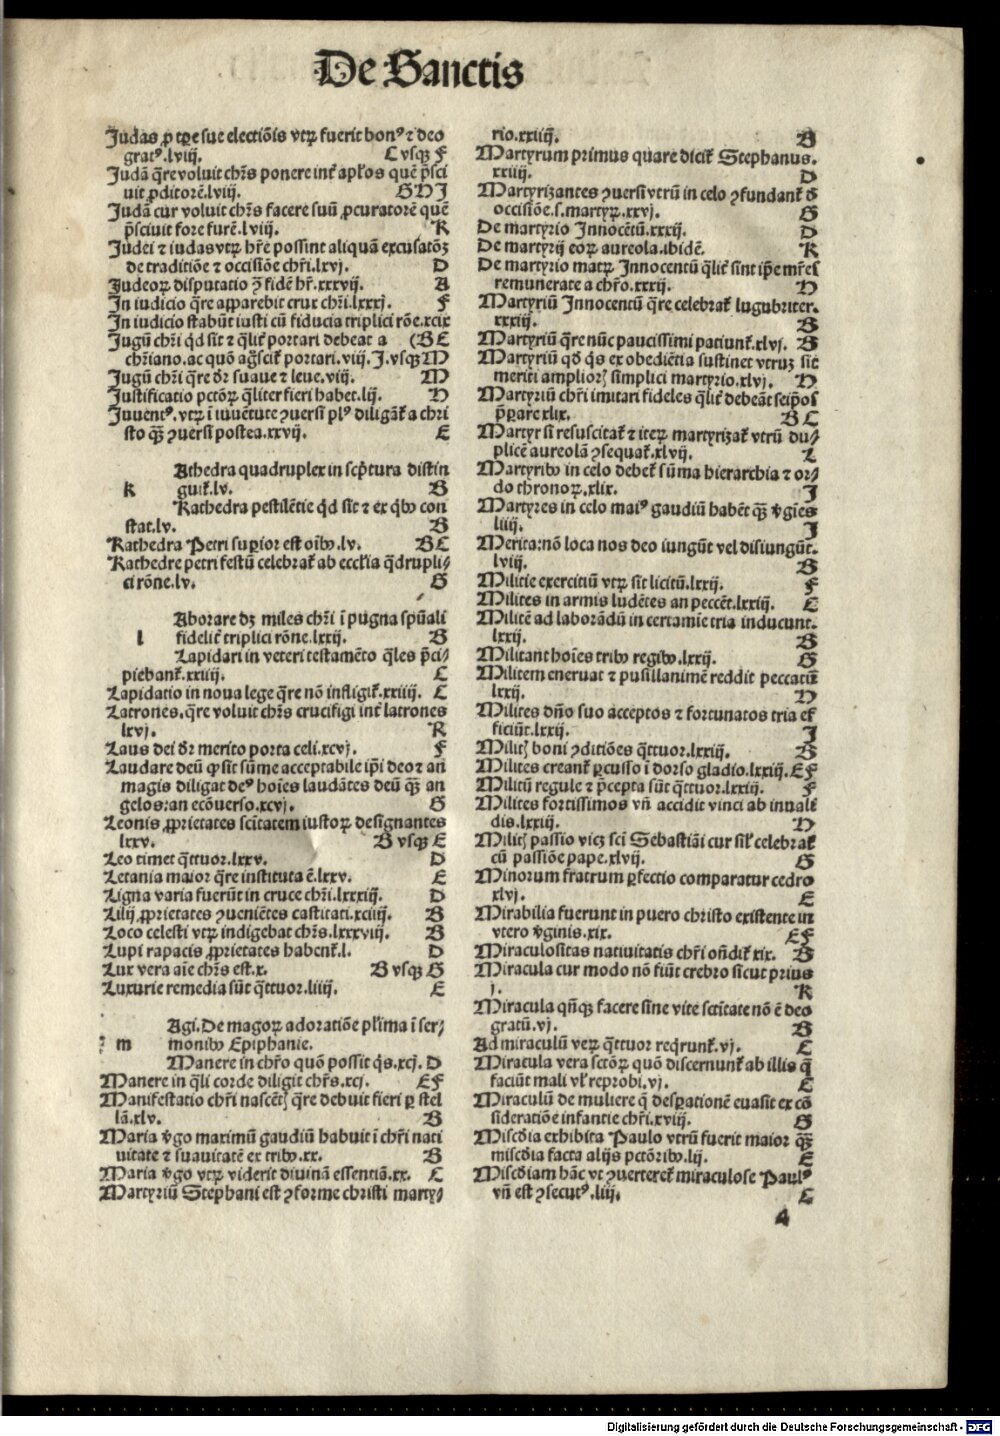 De Sanctis
Judas ꝓ tꝑe sue electiõis vtꝝ fuerit bonꝰ ⁊ deo
gratꝰ.lviij. C vsqꝫ F
Judã q̃re voluit chr̃s ponere int̃ apl̃os quẽ p̃sci
uit ꝓditorẽ.lviij. G H I
Judã cur voluit chr̃s facere suũ ꝓcuratorẽ quẽ
p̃sciuit fore furẽ.lviij. K
Judei ⁊ iudas vtꝝ hr̃e possint aliquã excusatõꝫ
de traditiõe ⁊ occisiõe chr̃i.lxvj. D
Judeoꝝ disputatio ꝯ̃ fidẽ hr̃.xxxvij. A
In iudicio q̃re apparebit crux chr̃i.lxxxj. F
In iudicio stabũt iusti cũ fiducia triplici rõe.xcix
Jugũ chr̃i qd̃ sit ⁊ q̃lit̃ portari debeat a (B C
chr̃iano.ac quõ ag̃scit̃ portari.viij.I.vsqꝫ M
Jugũ chr̃i q̃re dr̃ suaue ⁊ leue.viij. M
Justificatio pctõꝝ q̃liter fieri habet.lij. H
Juuentꝰ.vtꝝ ĩ iuuẽtute ꝯuersi plꝰ diligãt̃ a chri
sto qꝫ̃ ꝯuersi postea.xxvij. E
Athedra quadruplex in scp̃tura distin
k guit̃.lv. B
Kathedra pestilẽtie qd̃ sit ⁊ ex qbꝰ con
stat.lv. B
Kathedra Petri suꝑior est oĩbꝰ.lv. B C
Kathedre petri festũ celebrat̃ ab eccl̃ia q̃drupli⸗
ci rõne.lv. G
Aborare dꝫ miles chr̃i ĩ pugna spũali
l fidelit̃ triplici rõne.lxxij. B
Lapidari in veteri testamẽto q̃les p̃ci⸗
piebant̃.xxiiij. C
Lapidatio in noua lege q̃re nõ infligit̃.xxiiij. C
Latrones.q̃re voluit chr̃s crucifigi int̃ latrones
lxvj. K
Laus dei dr̃ merito porta celi.xcvj. F
Laudare deũ ꝙ sit sũme acceptabile ip̃i deo ⁊ an
magis diligat deꝰ hoĩes laudãtes deũ qꝫ̃ an
gelos:an ecõuerso.xcvj. G
Leonis ꝓprietates scĩtatem iustoꝝ designantes
lxxv. B vsqꝫ E
Leo timet q̃ttuor.lxxv. D
Letania maior q̃re instituta ẽ.lxxv. E
Ligna varia fuerũt in cruce chr̃i.lxxxiij. D
Lilij ꝓprietates ꝯueniẽtes castitati.xciiij. B
Loco celesti vtꝝ indigebat chr̃s.lxxxviij. B
Lupi rapacis ꝓprietates habent̃.l. D
Lux vera aĩe chr̃s est.x. B vsqꝫ G
Luxurie remedia sũt q̃ttuor.liiij. E
Agi.De magoꝝ adoratiõe pl̃ima ĩ ser⸗
m monibꝰ Epiphanie.
Manere in chr̃o quõ possit q̃s.xcj. D
Manere in q̃li corde diligit chr̃s.xcj. E F
Manifestatio chr̃i nascẽtꝭ q̃re debuit fieri ꝑ stel
lã.xlv. B
Maria ṽgo maximũ gaudiũ habuit ĩ chr̃i nati
uitate ⁊ suauitatẽ ex tribꝰ.xx. B
Maria ṽgo vtꝝ viderit diuinã essentiã.xx. C
Martyriũ Stephani est ꝯforme christi marty⸗
rio.xxiiij. B
Martyrum primus quare dicit̃ Stephanus.
xxiiij. D
Martyrizantes ꝯuersi vtrũ in celo ꝯfundant̃ d̃
occisiõe.s.martyꝝ.xxvj. G
De martyrio Innocẽtũ.xxxij. D
De martyrij eoꝝ aureola.ibidẽ. K
De martyrio matꝝ Innocentũ q̃lit̃ sint ip̃e mr̃es
remunerate a chr̃o.xxxij. H
Martyriũ Innocentũ q̃re celebrat̃ lugubriter.
xxxiij. B
Martyriũ q̃re nũc paucissimi patiunt̃.xlvj. B
Martyriũ qd̃ q̃s ex obediẽtia sustinet vtruꝫ sit
meriti ampliorꝭ simplici martyrio.xlvj. H
Martyriũ chr̃i imitari fideles q̃lit̃ debeãt seip̃os
p̃parare.xlix. B C
Martyr si resuscitat̃ ⁊ iteꝝ martyrizat̃ vtrũ du⸗
plicẽ aureolã ꝯsequat̃.xlvij. L
Martyribꝰ in celo debet̃ sũma hierarchia ⁊ or⸗
do thronoꝝ.xlix. I
Martyres in celo maiꝰ gaudiũ habẽt qꝫ̃ ṽgĩes
liiij. I
Merita:nõ loca nos deo iungũt vel disiungũt.
lviij. B
Militie exercitiũ vtꝝ sit licitũ.lxxij. F
Milites in armis ludẽtes an peccẽt.lxxiij. C
Militẽ ad laborãdũ in certamĩe tria inducunt.
lxxij. B
Militant hoĩes tribꝰ regibꝰ.lxxij. G
Militem eneruat ⁊ pusillanimẽ reddit peccatũ
lxxij. H
Milites dño suo acceptos ⁊ fortunatos tria ef
ficiũt.lxxij. I
Militꝭ boni ꝯditiões q̃ttuor.lxxiij. B
Milites creant̃ ꝑcusso ĩ dorso gladio.lxxiij.E F
Militũ regule ⁊ p̃cepta sũt q̃ttuor.lxxiij. F
Milites fortissimos vñ accidit vinci ab inuali
dis.lxxiij. H
Militꝭ passio vicꝫ sci Sebastiãi cur sil̃ celebrat̃
cũ passiõe pape.xlvij. G
Minorum fratrum ꝑfectio comparatur cedro
xlvj. E
Mirabilia fuerunt in puero christo existente in
vtero ṽginis.xix. E F
Miraculositas natiuitatis chr̃i oñdit̃ xix. B
Miracula cur modo nõ fiũt crebro sicut prius
j. K
Miracula qñqꝫ facere sine vite sctĩtate nõ ẽ deo
gratũ.vj. B
Ad miraculũ veꝝ q̃ttuor reqrunt̃.vj. C
Miracula vera sctõꝝ quõ discernunt̃ ab illis q̃
faciũt mali vl̃ reprobi.vj. C
Miraculũ de muliere q̃ desꝑationẽ euasit ex cõ
sideratiõe infantie chr̃i.xviij. G
Misc̃dia exhibita Paulo vtrũ fuerit maior qꝫ̃
misc̃dia facta alijs pctõribꝰ.lij. E
Misc̃diam hãc vt ꝯuerteret̃ miraculose Paulꝰ
vñ est ꝯsecutꝰ.liij. C
4
Digitalisierung gefördert durch die Deutsche Forschungsgemeinschaft - DFG